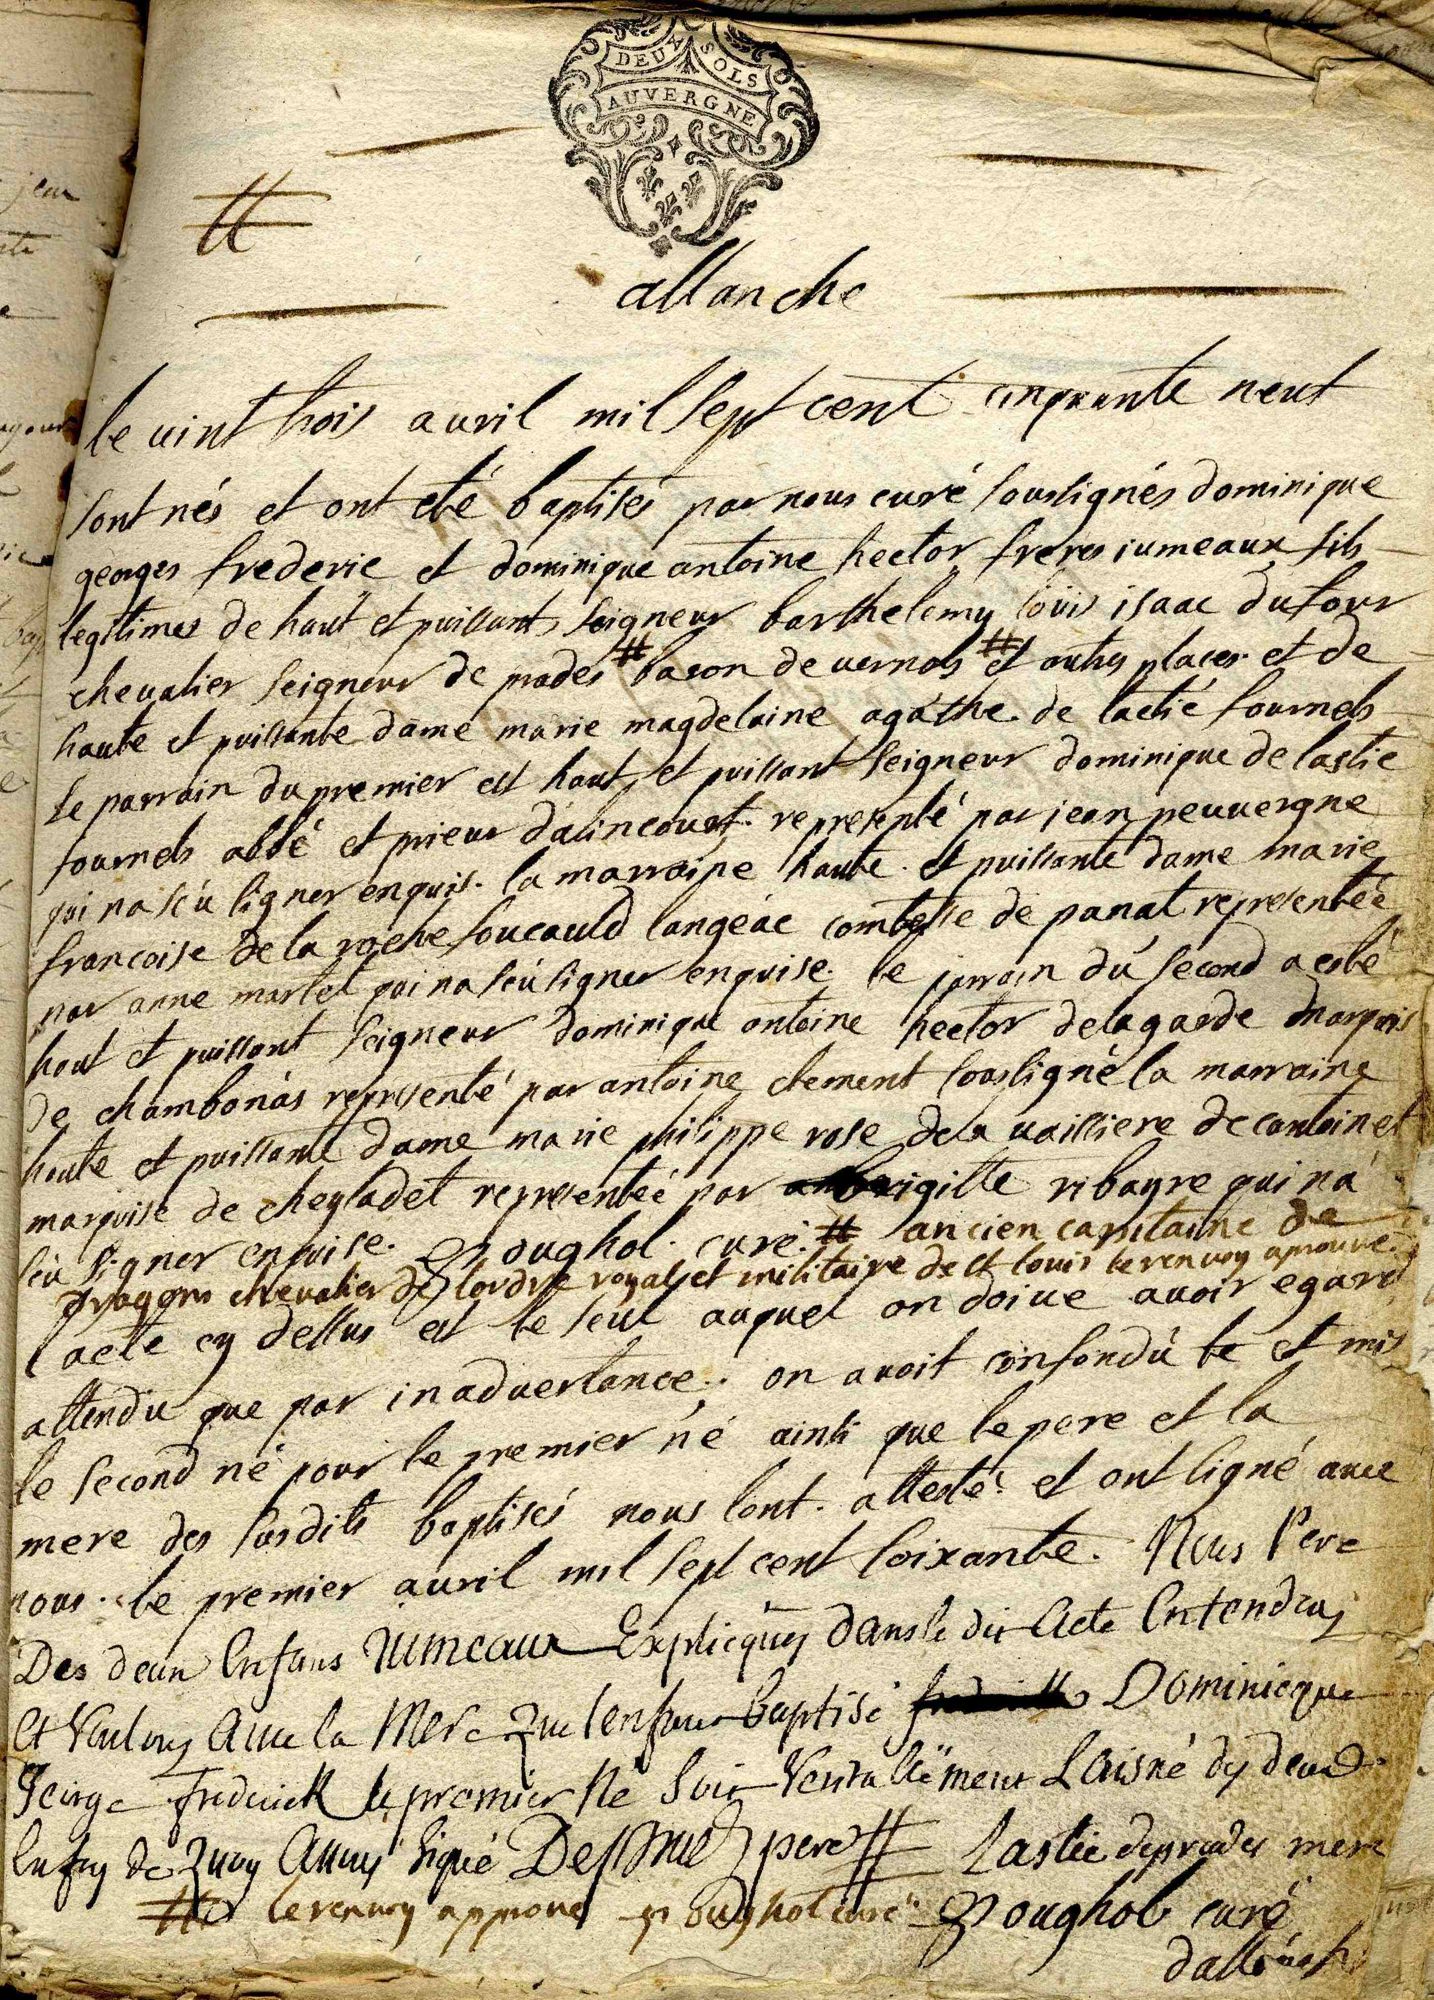 DEUX SOLS
AUVERGNE
allanche
le vint trois avril mil sept cent cinquante neuf
sont nés et ont eté baptisés par nous curé soussignés dominique
georges frederic et dominique antoine hector freres iumeaux fils
legitimes de haut et puissant seigneur barthelemy louis isaac dufour
chevalier seigneur de prades # baron de vernols # et autres places et de
haute et puissante dame marie magdelaine agathe de lactié fournels
le parrain du premier est haut et puissant seigneur dominique de lastie
fournels abbé et prieur d'alincourt representé par jean peuvergne
qui na sçu signer enquis. la marraine haute et puissante dame marie
francoise de la roche foucauld langéac comtesse de panat representeé
par anne martel qui na sçu signer enquise. le parrain du second a esté
haut et puissant seigneur dominique antoine hector delagarde marquis
de chambonas representé par antoine clement soussigné la marraine
haute et puissante dame marie philippe rose de la vaissiere de cantoinet
marquise de cheyladet representeé par brigitte ribayre qui na
sçu signer enquise. Pougnol. curé. # ancien capitaine de
dragons chevalier de lordre royal et militaire de st louis le renvoy aprouvé.
l'acte cy dessus est le seul auquel on doive avoir egard
attendu que par inadvertance. on avoit confondu le et mis
le second né pour le premier né ainsi que le pere et la
mere des susdits baptisés nous lont. attesté. et ont signé avec
nous. le premier avril mil sept cent soixante. Nous Pere
Des deux Enfans Jumeaux Explicqués dans le dit Acte Entendons
et Voulons Avec la Mere que lenfant baptisé Dominicque
George frederick le premier Né soit Veritablement Laisné des deux
Enfans de quoy Avons signé Desprades pere # Lastic desprades mere
# le renvoy approuvé Pougnol curé Pougnol curé
dallanche